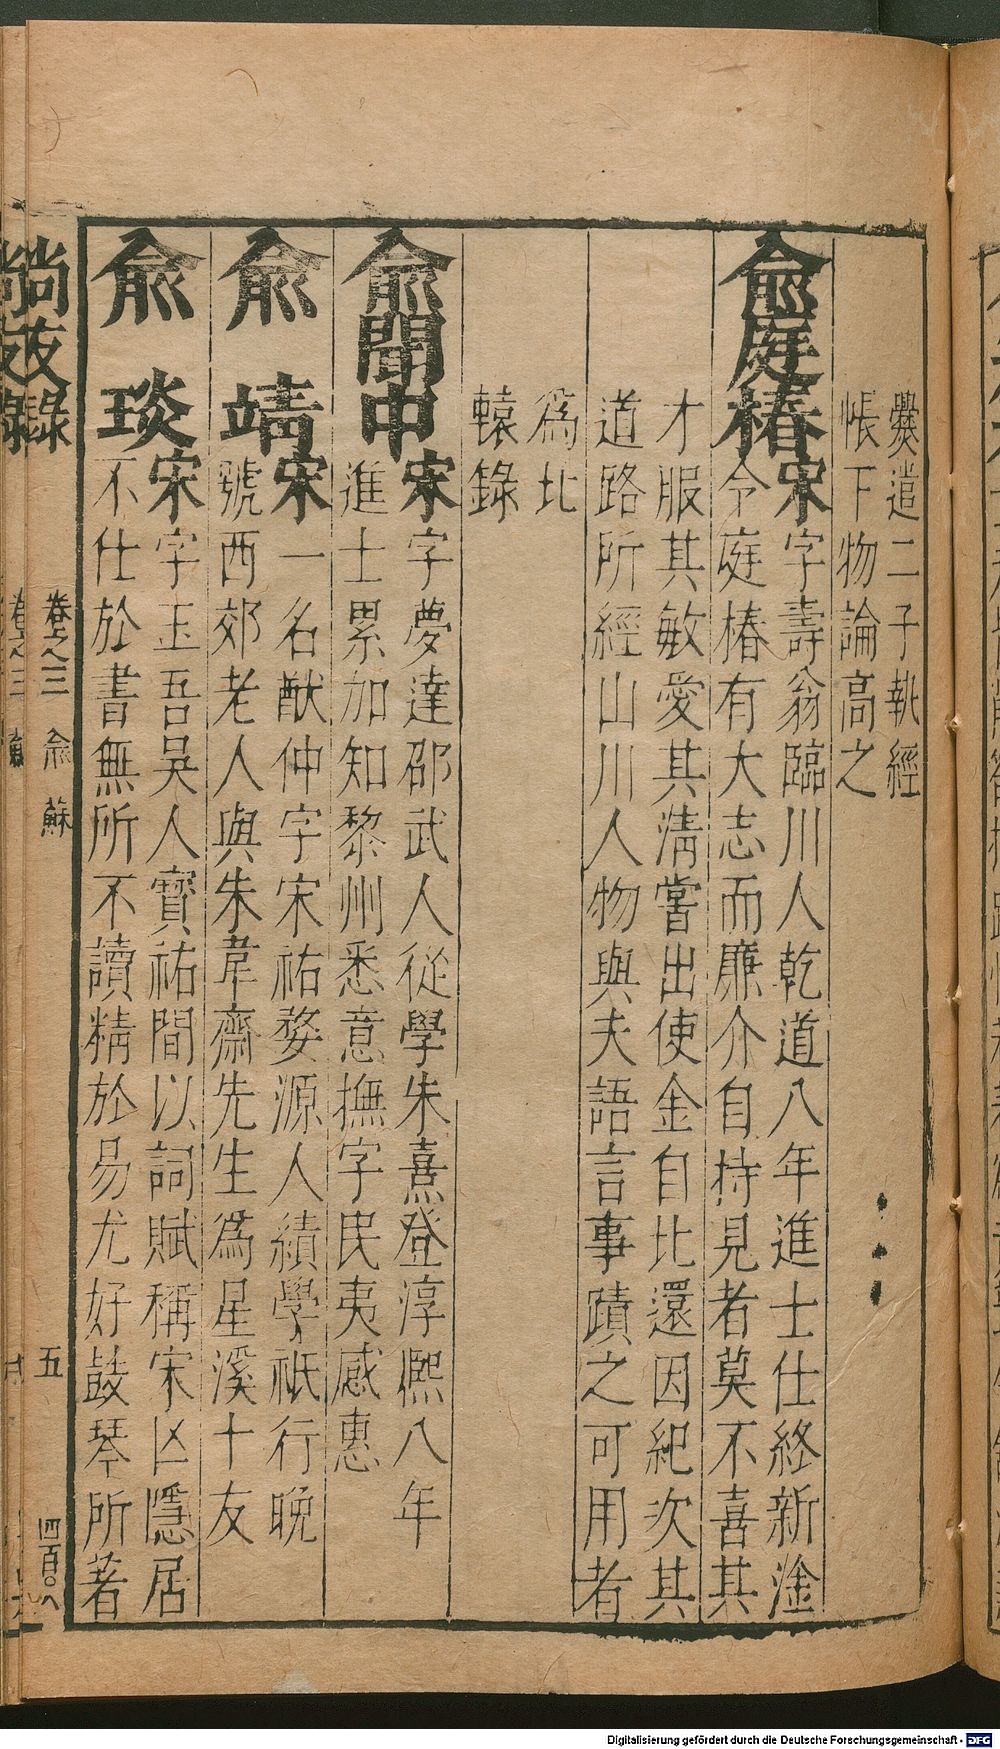 爨遣二子執經
帳下物論高之
俞庭椿宋字壽翁臨川人乾道八年進士仕終新淦
令庭椿有大志而廉介自持見者莫不喜其
才服其敏愛其清嘗出使金自比還因紀次其
道路所經山川人物與夫語言事蹟之可用者
為北
轅錄
俞聞中宋字夢達邵武人從學朱熹登淳熈八年
進士累加知黎州悉意撫字民夷感惠
俞靖宋一名猷仲字宋祐婺源人績學祇行晚
號西郊老人與朱韋齋先生爲星溪十友
俞琰宋字玉吾吳人寶祐間以詞賦稱宋亾隱居
不仕於書無所不讀精於易尤好鼓琴所著
尚友錄 卷之三 俞 蘇 五 四百〇八
Digitalisierung gefördert durch die Deutsche Forschungsgemeinschaft - DFG